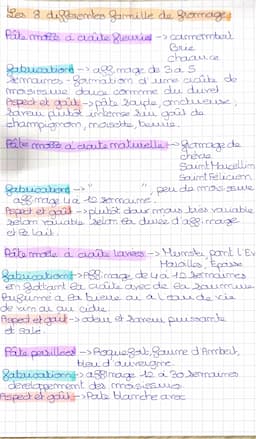 Les 8 différentes famille de fromage
Pâte molle à croûte fleuries -> camembert
Brie
chaource
Fabrication -> affinage de 3 à 5
semaines - formation d'une croûte de
moisissure douce comme du duvet
Aspect et goût -> pâte souple, onctueuse,
saveur plutôt intense au goût de
champignon, noisette, beurre.
Pâte molle à croute naturelle -> fromage de
chèvre
Saint Marcellin
Saint Félicien
Fabrication -> " ", peu de moisissure
affinage 4 à 12 semaine.
Aspect et goût -> plutôt doux mais très variable
selon variable selon la durée d'affinage
et la lait.
Pâte molle à croute lavées -> Munster, pont l'Ev
Maroilles, Epoisse
Fabrication -> Affinage de 4 à 12 semaines
en frottant la croûte avec de la saumure
Parfumé à la bière ou à l'eau de vie
de vin ou au cidre.
Aspect et goût -> odeur et saveur puissante
et salé.
Pâte persillées -> Roquefort, fourme d'Ambert,
bleu d'auvergne.
Fabrication -> affinage 12 à 30 semaines
développement des moisissures
Aspect et goût -> Pâte blanche avec